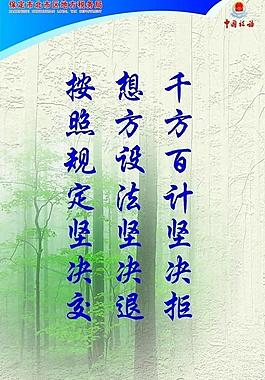 保定市北市区地方税务局
中国税务
千方百计坚决拒
想方设法坚决退
按照规定坚决交